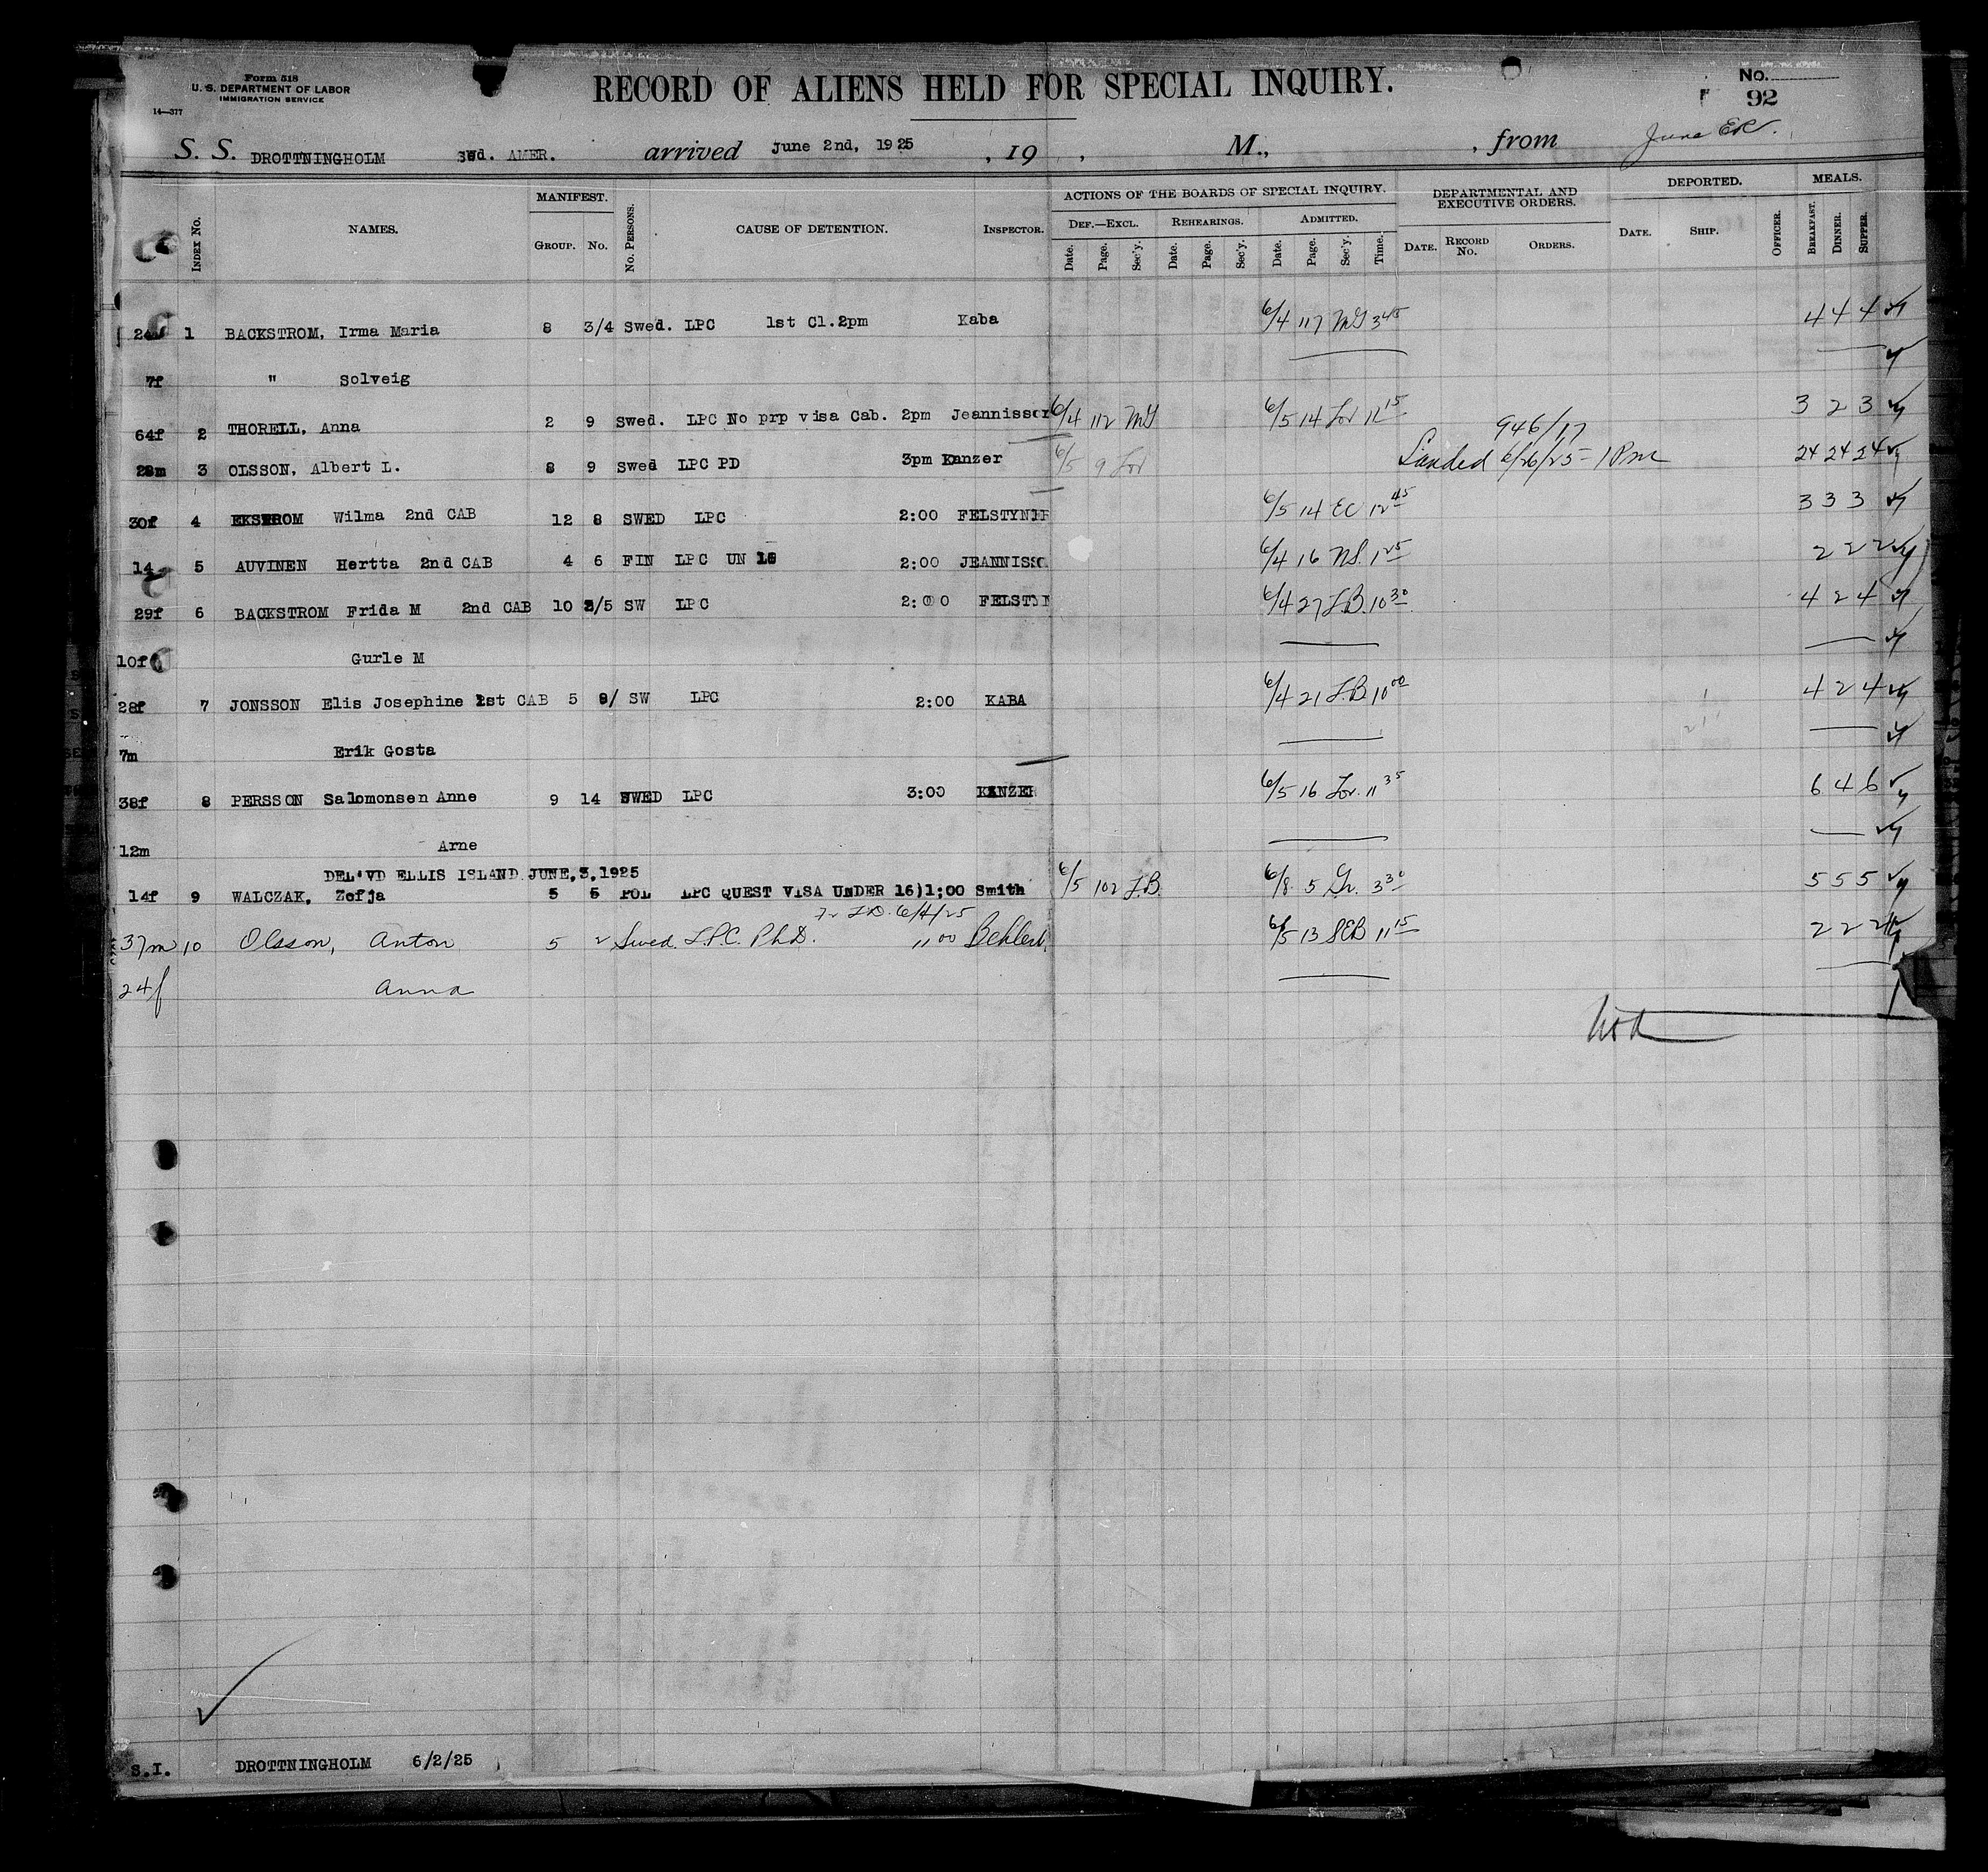 Form 518
U. S. DEPARTMENT OF LABOR
IMMIGRATION SERVICE
14—377
RECORD OF ALIENS HELD FOR SPECIAL INQUIRY.
No.
92
S. S. DROTTNINGHOLM Swd. AMER. arrived June 2nd, 1925 , 19 , M., , from June
INDEX NO. NAMES. MANIFEST. GROUP. NO. NO. PERSONS. CAUSE OF DETENTION. INSPECTOR. ACTIONS OF THE BOARDS OF SPECIAL INQUIRY. DEF.—EXCL. Date. Page. Sec'y. REHEARINGS. Date. Page. Sec'y. ADMITTED. Date. Page. Sec'y. Time. DEPARTMENTAL AND EXECUTIVE ORDERS. DATE. RECORD NO. ORDERS. DEPORTED. DATE. SHIP. OFFICER. MEALS. BREAKFAST. DINNER. SUPPER.
24f 1 BACKSTROM, Irma Maria 8 3/4 Swed. LPC 1st Cl. 2pm Kaba 6/4 117 MG 3 45 4 4 4
7f " Solveig
64f 2 THORELL, Anna 2 9 Swed. LPC No prp visa Cab. 2pm Jeannisson 6/4 112 MG 6/5 14 Lor 11 15 3 2 3
946/17
28m 3 OLSSON, Albert L. 8 9 Swed LPC PD 3pm Kanzer 6/5 9 Lor Landed 6/26/25 - 1 Pm 24 24 24
30f 4 EKSTROM Wilma 2nd CAB 12 8 SWED LPC 2:00 FELSTYNER 6/5 14 EC 12 45 3 3 3
14 5 AUVINEN Hertta 2nd CAB 4 6 FIN LPC UN 16 2:00 JEANNISSO 6/4 16 NS. 1 25 2 2 2
29f 6 BACKSTROM Frida M 2nd CAB 10 /5 SW LPC 2:00 FELSTYN 6/4 27 LB. 10 30 4 2 4
10f Gurle M
28f 7 JONSSON Elis Josephine 1st CAB 5 8/ SW LPC 2:00 KABA 6/4 21 LB 10 00 4 2 4
7m Erik Gosta
38f 8 PERSSON Salomonsen Anne 9 14 SWED LPC 3:00 KANZER 6/5 16 Lor. 11 35 6 4 6
12m Arne
DEL'VD ELLIS ISLAND JUNE,3,1925
14f 9 WALCZAK, Zofja 5 5 POL LPC QUEST VISA UNDER 16) 1:00 Smith 6/5 102 LB. 6/8 5 Gr. 3 30 5 5 5
6/4/25
37m 10 Olsson, Anton 5 2 Swed. L.P.C. Ph.D. 11 00 6/5 13 SEB 11 15 2 2 2
24f Anna
S.I. DROTTNINGHOLM 6/2/25